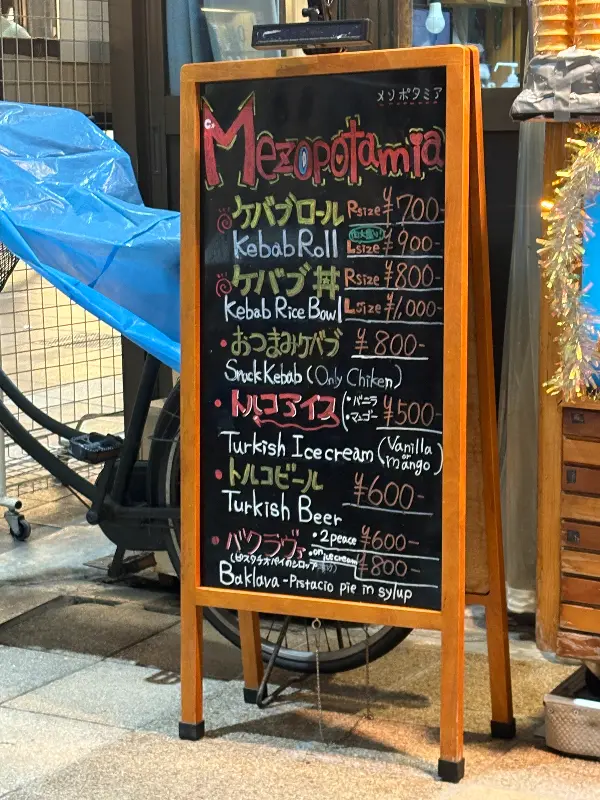 メソポタミア
Mezopotamia
ケバブロール Rsize ¥700-
Kebab Roll Lsize ¥900-
ケバブ丼 Rsize ¥800-
Kebab Rice Bowl Lsize ¥1,000-
・おつまみケバブ ¥800-
Snack Kebab (Only Chiken)
・トルコアイス (・バニラ ・マンゴー ¥500-
Turkish Icecream (Vanilla or mango)
・トルコビール ¥600-
Turkish Beer
・バクラヴァ ・2peace ¥600-
(ピスタチオパイのシロップ ・on icecream ¥800-
Baklava - Pistacio pie in sylup